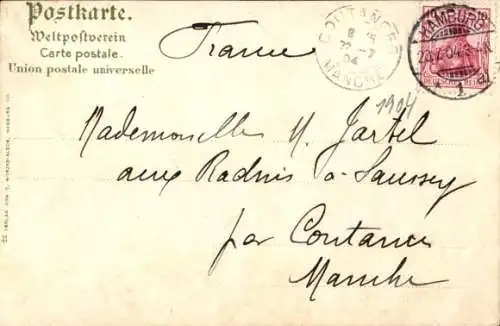 Postkarte.
Weltpostverein
Carte postale.
Union postale universelle
France
COUTANCES
22 -7
04
MANCHE
HAMBURG
20.7.04.
* 1
1904
Mademoiselle M. Jartel
aux Radnis a Saussey
par Coutances
Manche